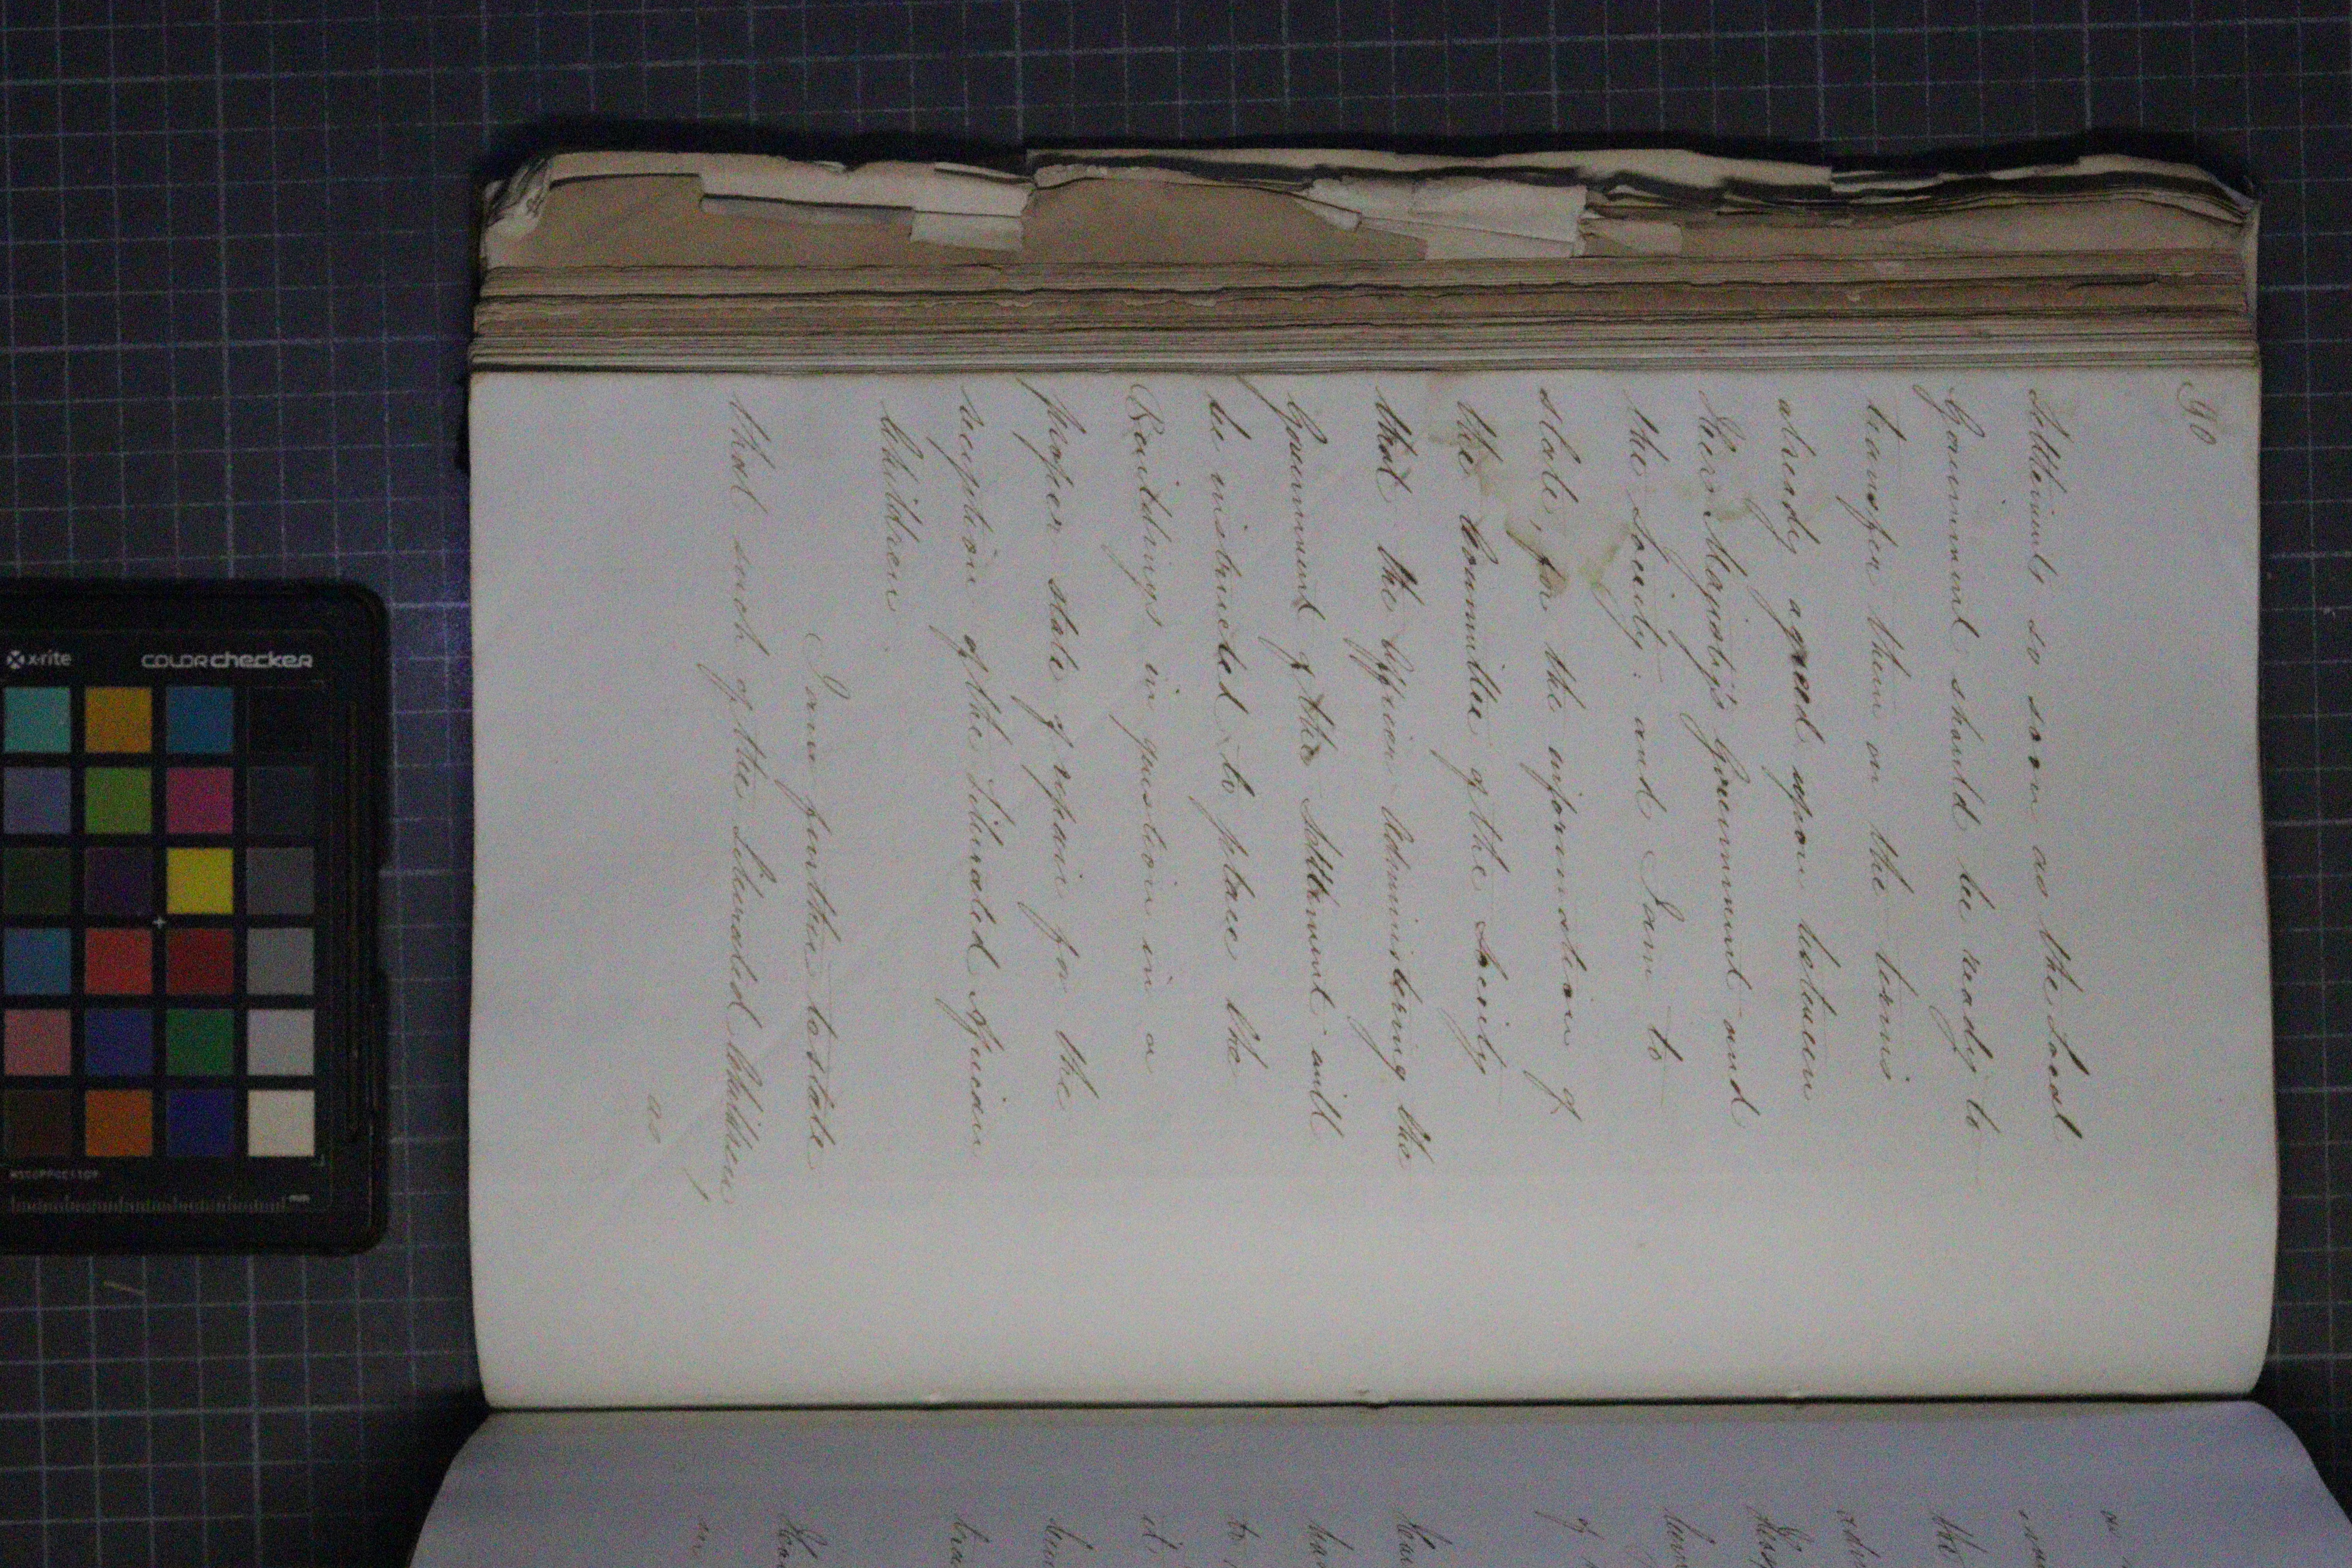 90
Settlements so soon as the Local
Government should be ready to
transfer them on the terms
already agreed upon between
Her Majesty's Government and
the Society: and I am to
state, for the information of
the Committee of the Society
that the Officer Administering the
Government of the Settlement will
be instructed to place the
Buildings in question in a
proper state of repair for the
reception of the liberated African
Children.
I am further to state
that such of the Liberated Children,
as
x-rite colorchecker
mm